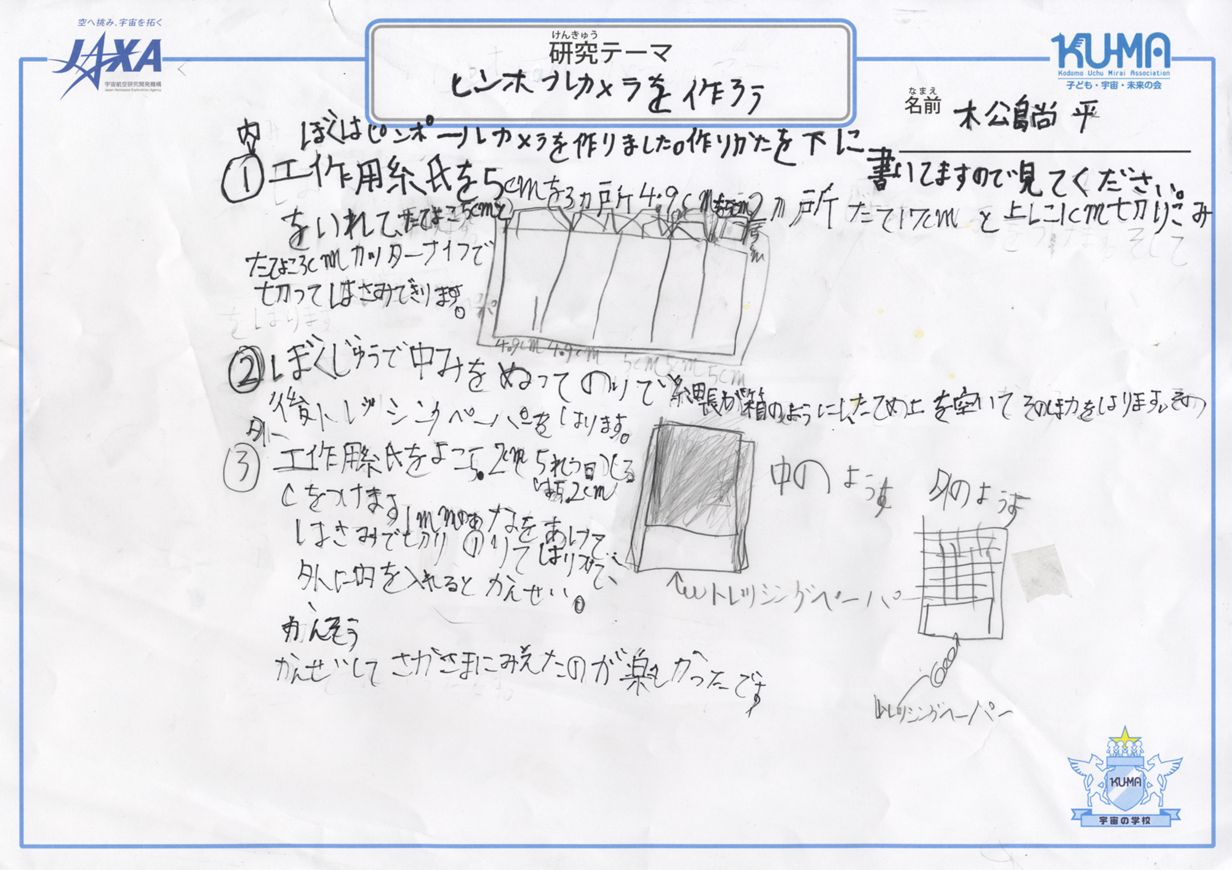 空へ挑み、宇宙を拓く
JAXA
宇宙航空研究開発機構
Japan Aerospace Exploration Agency
けんきゅう
研究テーマ
ピンホールカメラを作ろう
KU-MA
Kodomo Uchu Mirai Association
子ども・宇宙・未来の会
なまえ
名前 松島尚平
ぼくはピンポールカメラを作りました。作りかたを下に
書いてますので見てください。
内
① 工作用紙を5cmを3ヵ所4.9cm 2ヵ所たて17cmと上に1cm切りこみ
をいれて、たてよこ5cm
cmカッターナイフで
切ってはさみできります。
4.9cm 4.9cm 5cm 5cm 5cm
② ぼくじゅうで中みをぬってのりで 箱のようにしたため上を空いてそのほかをはります。その
後トレシンクペーパーをはります。
外
③ 工作用紙をよこ5.2cm
5.2cm
Cをつけます 1mmのあなをあけて
はさみで切りのりではりつけて、
外に内を入れるとかんせい。
中のようす
外のようす
トレッシングペーパー
かんそう
かんせいしてさかさまにみえたのが楽しかったです
トレッシングペーパー
KUMA
宇宙の学校